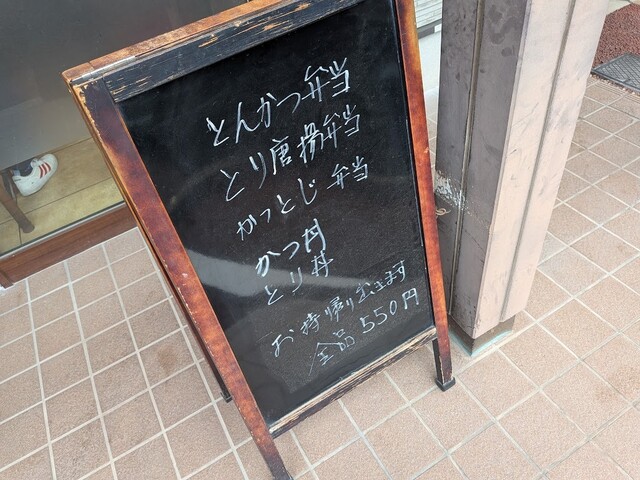 とんかつ弁当
とり唐揚弁当
かつとじ弁当
かつ丼
とり丼
お持帰り出来ます
全品550円